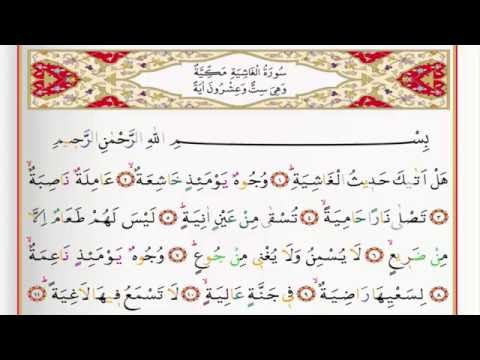 سُورَةُ الْغَاشِيَةِ مَكِّيَّةٌ
وَهِيَ سِتٌّ وَعِشْرُونَ اٰيَةً
بِسْمِ اللّٰهِ الرَّحْمٰنِ الرَّحِيمِ
هَلْ اَتٰيكَ حَدٖيثُ الْغَاشِيَةِۜ ﴿١﴾ وُجُوهٌ يَوْمَئِذٍ خَاشِعَةٌۙ ﴿٢﴾ عَامِلَةٌ نَاصِبَةٌۙ
﴿٣﴾ تَصْلٰى نَارًا حَامِيَةًۙ ﴿٤﴾ تُسْقٰى مِنْ عَيْنٍ اٰنِيَةٍۜ ﴿٥﴾ لَيْسَ لَهُمْ طَعَامٌ اِلَّا
مِنْ ضَرٖيعٍۙ ﴿٦﴾ لَا يُسْمِنُ وَلَا يُغْنٖي مِنْ جُوعٍۜ ﴿٧﴾ وُجُوهٌ يَوْمَئِذٍ نَاعِمَةٌۙ
﴿٨﴾ لِسَعْيِهَا رَاضِيَةٌۙ ﴿٩﴾ فٖي جَنَّةٍ عَالِيَةٍۙ ﴿١٠﴾ لَا تَسْمَعُ فٖيهَا لَاغِيَةًۜ ﴿١١﴾